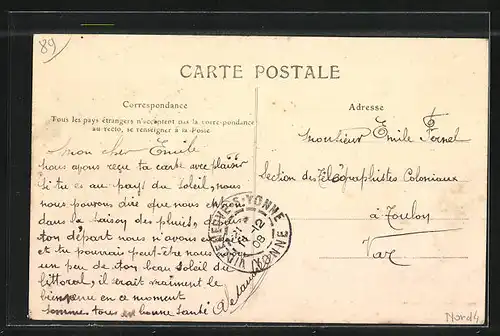 89
CARTE POSTALE
Correspondance
Tous les pays étrangers n'acceptent pas la correspondance
au recto, se renseigner à la Poste
Adresse
Mon cher Emile
nous avons reçu ta carte avec plaisir
Si tu es au pays du Soleil, nous
nous pouvons dire que nous
dans la Saison des pluies, depuis
ton départ nous n'avons
et tu pourrais peut-être nous
un peu de ton beau Soleil du
littoral, il serait vraiment le
bienvenu en ce moment
sommes tous en bonne santé
Monsieur Emile Fornet
Section des Télégraphistes Coloniaux
à Toulon
Var
VILLENEUVE-S-YONNE
12
08
YONNE
Nord4